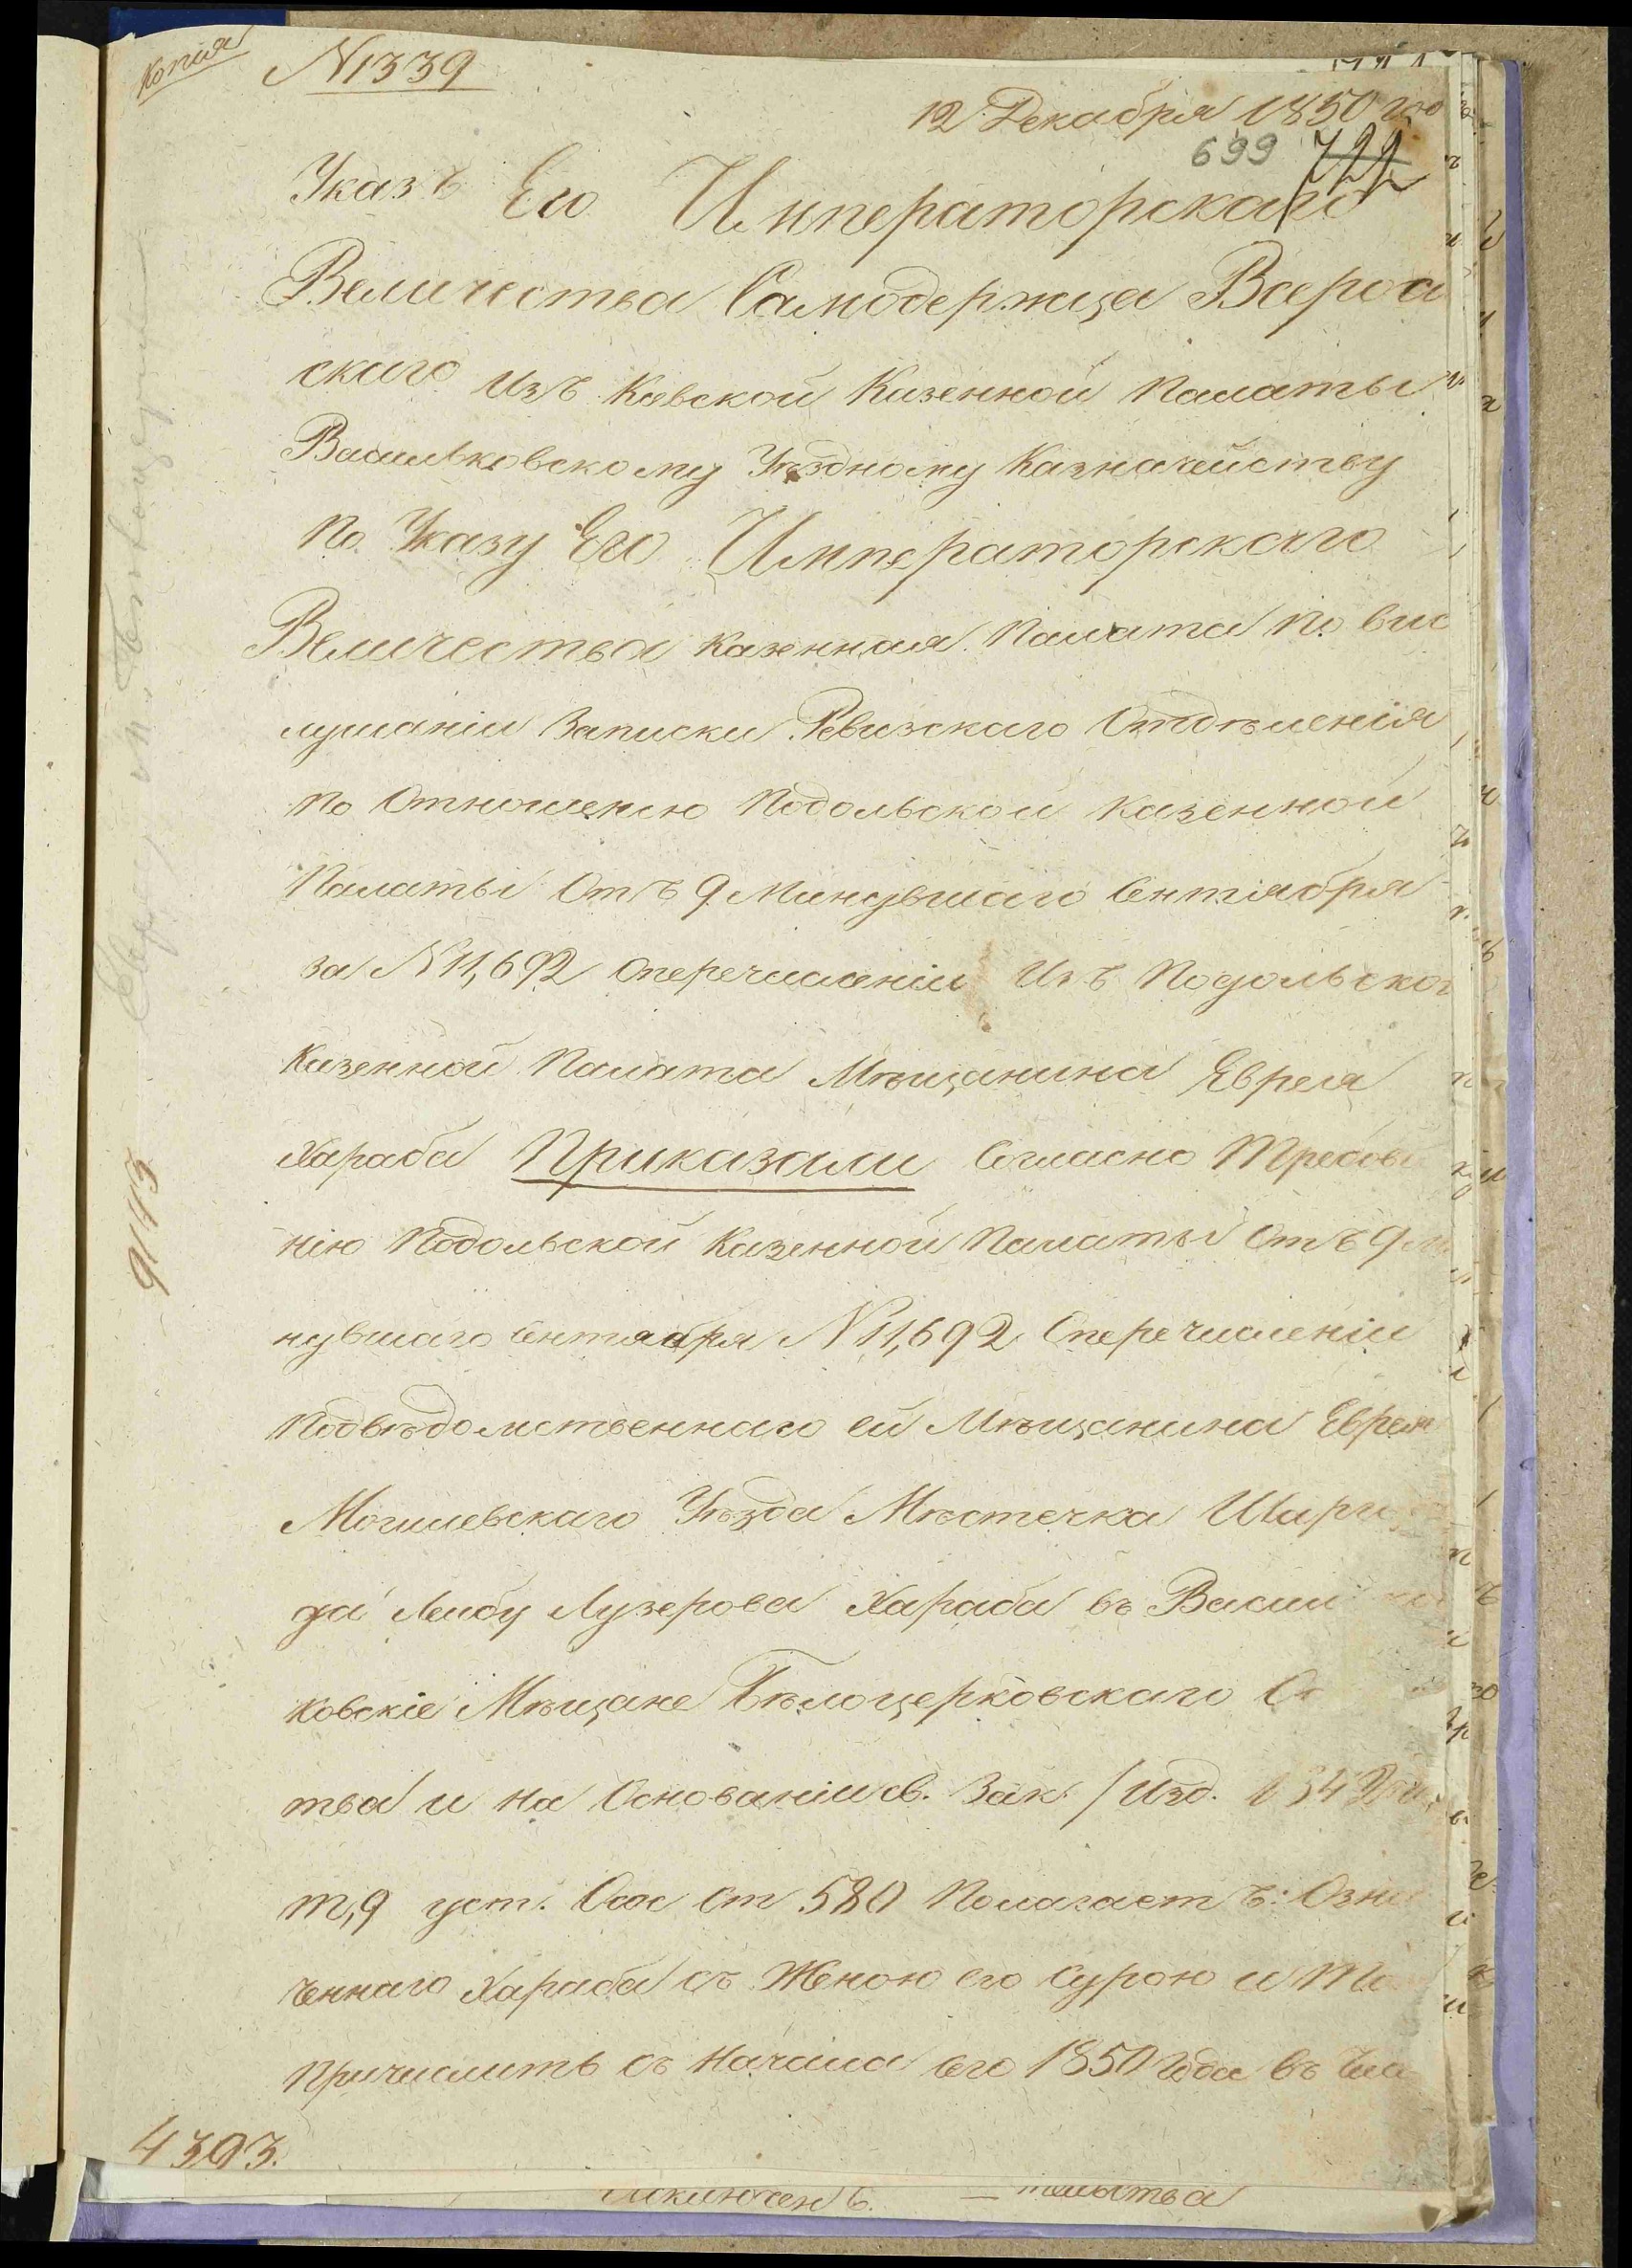 Копія
N 1339
12 Декабря 1850 го
699 722
Указъ Его Императорскаго
Величества Самодержца Вероси
скаго изъ Кіевской Казенной Палаты
Васильковскому Уѣздному Казначейству
По Указу Его Императорскаго
Величества Казенная Палата по выс
лушаніи Записки Ревизскаго Отдѣленія
по Отношенію Подольской Казенной
Палаты Отъ 9 Минувшаго Сентября
за N 11,692 Оперечисленіи Изъ Подольской
Казенной Палата Мѣщанина Еврея
Хараба Приказали Согласно Требова
нію Подольской Казенной Палаты Отъ 9 Ми
нувшаго Сентября N 11,692 Оперечисленіи
Подвѣдомственнаго ей Мѣщанина Еврея
Могилевскаго Уѣзда Мѣстечка Шарго
да Лейбу Лузерова Хараба въ Василь
ковскіе Мѣщане Бѣлоцерковскаго О
тва и на Основаніи св. Зак. / Изд.
т, 9 уст. Сос Ст 580 Полагаетъ: Озна
ченнаго Хараба съ Женою его Сурою и
Причислить съ Начала сего 1850 года въ
9113
4393.